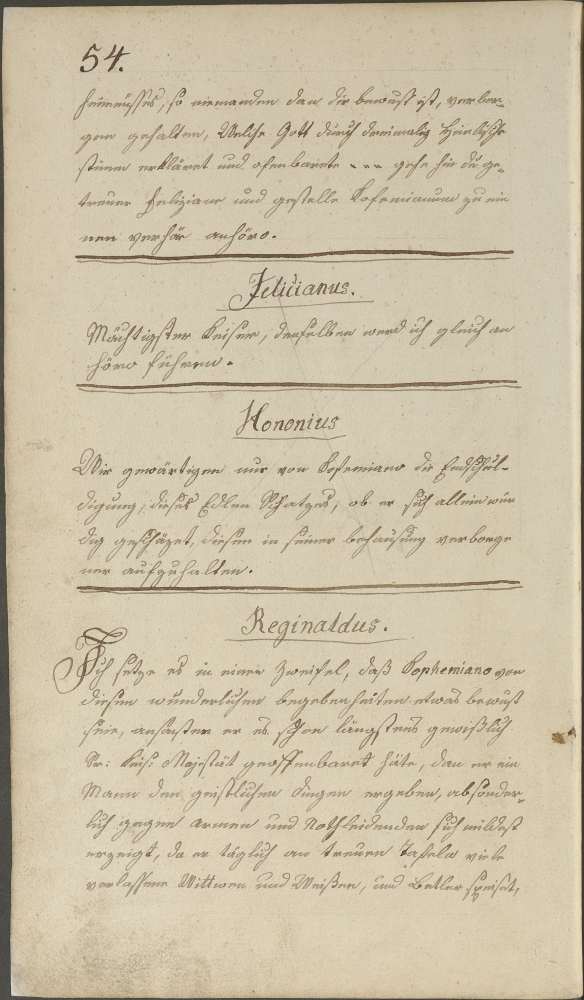 54.
heimnüsses, so niemanden dan dir bewust ist, verbor-
gen gehalten, Welche Gott durch dreimalig Himlische
stimm erkläret und ofenbarete - - - gehe hin du ge-
treuer Feliziane und gestelle Eofemianum zu ei
nen verhör anhöro.
Felicianus.
Mächtigster Keiser, denselben werd ich gleich an
höro führen.
Hononius
Wir gewärtigen nur von Eofemiano die Endschul-
digung, dieses Edlen Schatzes, ob er sich allein wür
dig geschäzet, diesen in seiner behausung verborge
ner aufzuhalten.
Reginaldus.
Ich setze es in einen Zweifel, daß Eophemiano von
diesen wunderlichen begebenheiten etwas bewust
seie, ansonsten er es schon längstens gewißlich
Sr: Keis: Majestät geoffenbaret häte, dan er ein
Mann den geistlichen dingen ergeben, absönder-
lich gegen armen und Nothleidenden sich mildest
erzeigt, da er täglich an treuen Tafeln viele
verlassene Wittwen und Weißen, und Betler speiset,